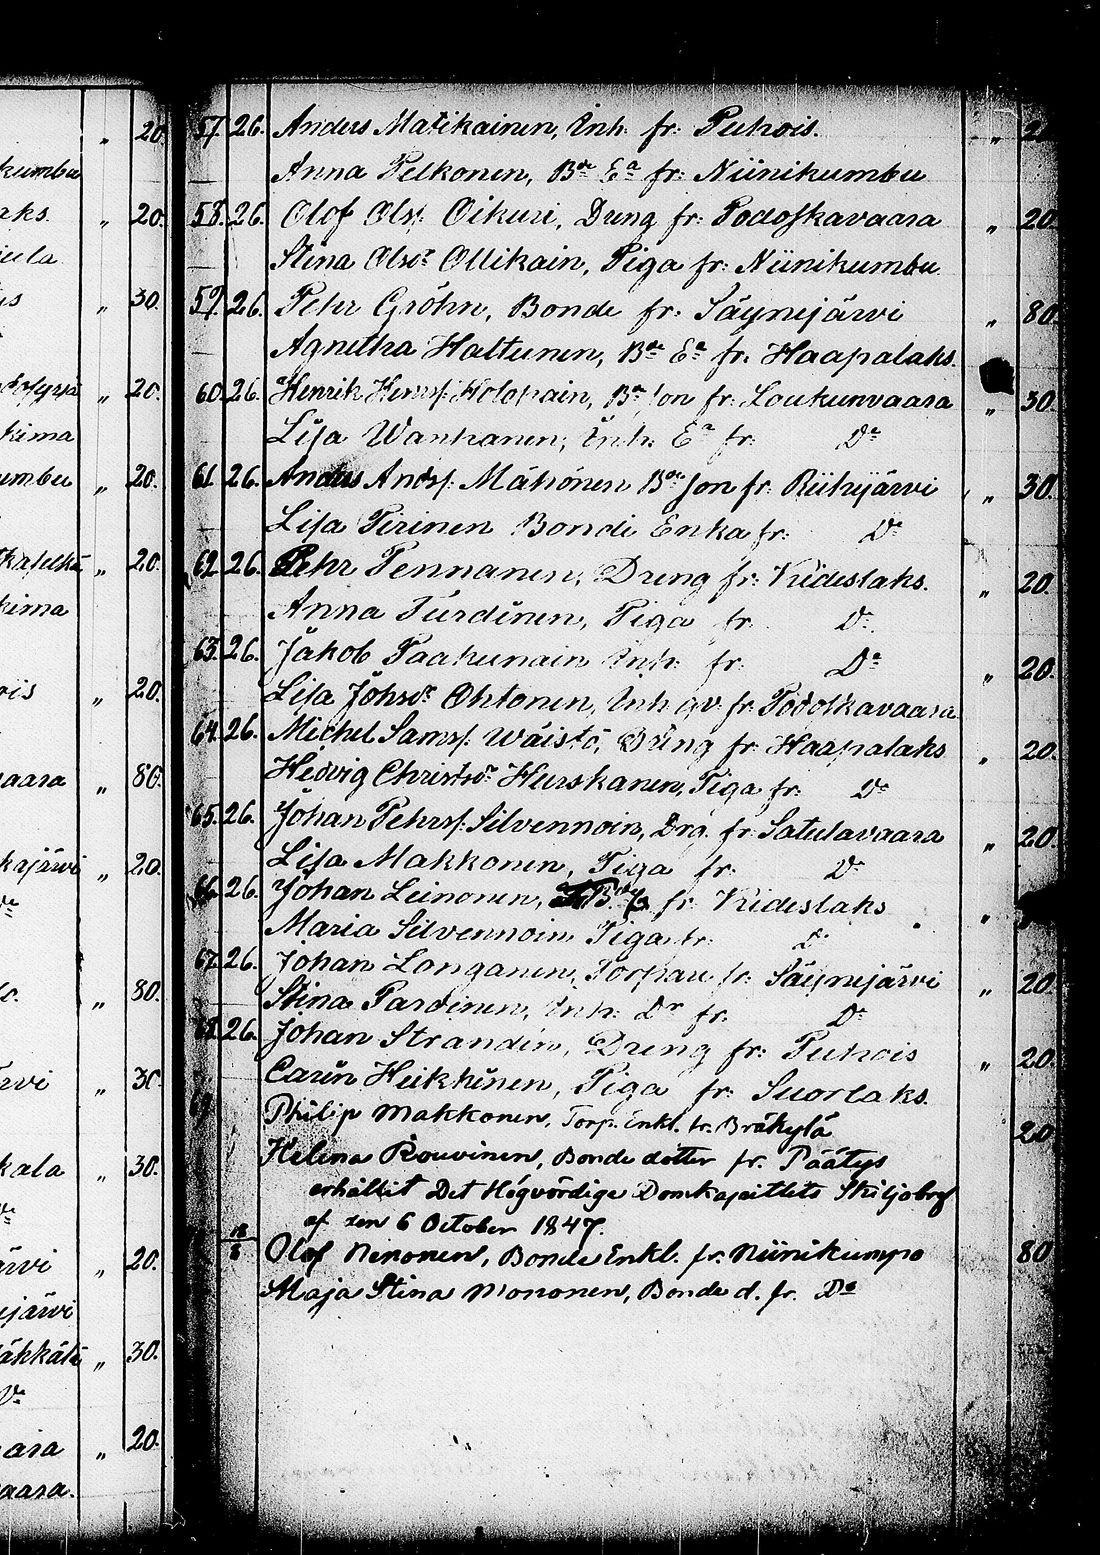 „ 20.
kumbu
aks. „ 20.
iula
ys „ 30.
„ 20.
kima
umbu „ 20.
kaselkä „ 20.
kima
ois „ 20.
vaara „ 80.
kajärvi „ 20.
„ 80.
ärvi „ 30.
kala „ 30.
ärvi „ 20.
ejärvi
„ 30.
Dº
aara „ 20.
vaara.
57. 26. Anders Matikainen, Inh. fr: Puhois. „ 20
Anna Pelkonen, Bde Ea fr: Niinikumbu
58. 26. Olof Olss. Oikuri, Dräng fr: Podoskavaara „ 20.
Stina Olsdr Ollikain, Piga fr: Niinikumbu
59. 26. Pehr Gröhn, Bonde fr: Säynejärvi „ 80.
Agnetha Hattunen, Bde Ea fr: Haapalaks.
60. 26. Henrik Henrss. Holopain, Bde Son fr: Loukunvaara „ 30.
Lisa Wanhanen, Inh. Ea fr: Do
61. 26. Anders Andss. Mähönen Bde Son fr: Riihijärvi „ 30.
Lisa Pirinen Bonde Enka fr: Do
62. 26. Pehr Pennanen, Dreng fr: Kideslaks. „ 20.
Anna Turdinen, Piga fr: Do
63. 26. Jakob Paakunain Inh. fr: Do „ 20.
Lisa Johsdr Ohtonen, Inh. qv. fr: Podoskavaara
64. 26. Michel Samss. Wäistö, Dräng fr: Haapalaks „ 20.
Hedvig Christsdr Hurskanen, Piga fr: Do
65. 26. Johan Pehrss. Silvennoin, Drg. fr: Satulavaara „ 20.
Lisa Makkonen, Piga fr: Do
66. 26. Johan Leinonen, fr: Kideslaks „
Maria Silvennoin Piga fr: Do
67. 26. Johan Longanen, Torpare fr: Säynejärvi „ 20.
Stina Parvinen, Inh. Dr fr: Do
68. 26. Johan Strandin, Dreng fr: Puhois „ 20.
Carin Heikkinen, Piga fr: Suorlaks.
69. Philip Makkonen, Torp. Enkl. fr. Bräkylä 20.
Helena Rouvinen, Bonde dotter fr. Päätys
erhållit Det Högvördige Domkapitlets Skiljobref
af den 6 October 1847.
Olof Nenonen, Bonde Enkl. fr. Niinikumpo 80.
Maja Stina Mononen, Bonde d. fr. Do